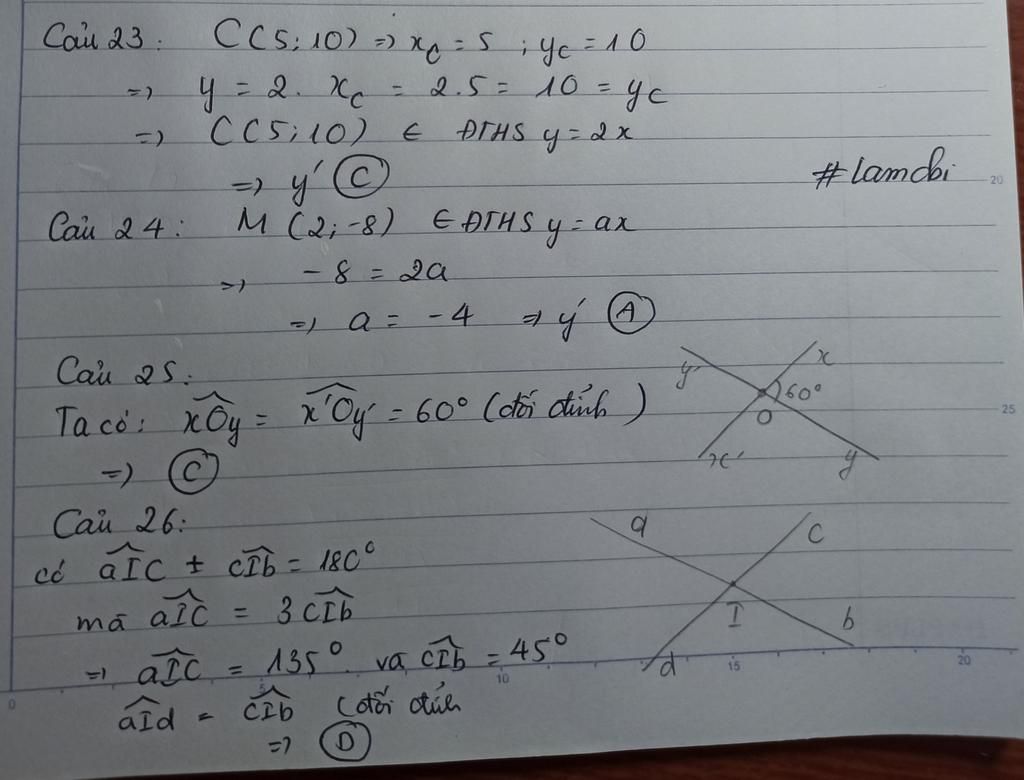 Câu 23: C(5;10) => x_C = 5 ; y_C = 10
=> y = 2. x_C = 2.5 = 10 = y_C
=> C(5;10) ∈ ĐTHS y = 2x
=> ý C
#lamchi
Câu 24: M (2;-8) ∈ ĐTHS y = ax
=> -8 = 2a
=> a = -4 => ý A
Câu 25:
Ta có: xÔy = x'Ôy' = 60° (đối đỉnh)
=> C
y' x
60°
O
x' y
Câu 26:
có aIC + cIb = 180°
mà aIC = 3cIb
=> aIC = 135° và cIb = 45°
aId = cIb (đối đỉnh
=> D
a c
I
b
d
20
25
0 5 10 15 20